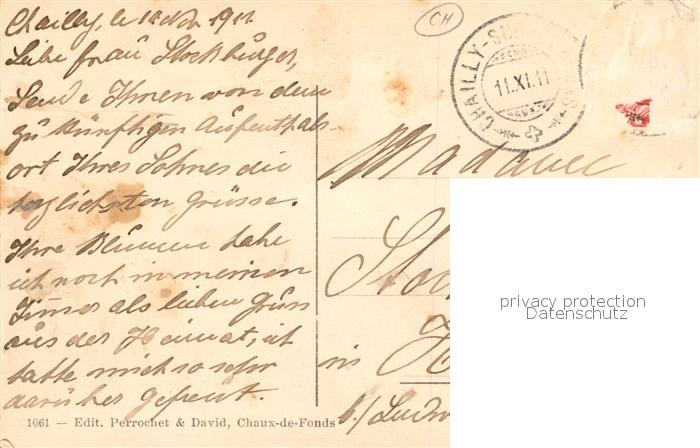 Chailly, le 11 Nov 1911
Liebe Frau Stockburger,
Sende Ihnen von dem
zukünftigen Aufenthals-
ort Ihres Sohnes die
herzlichsten Grüsse.
Ihre Blumen habe
ich noch in meinem
Zimmer als lieben Gruss
aus der Heimat, ich
hatte mich so sehr
darüber gefreut.
1061 — Edit. Perrochet & David, Chaux-de-Fonds
CH
CHAILLY-SU
11.XI.11
Madame
Stoc
in H
b./Ludw
privacy protection
Datenschutz